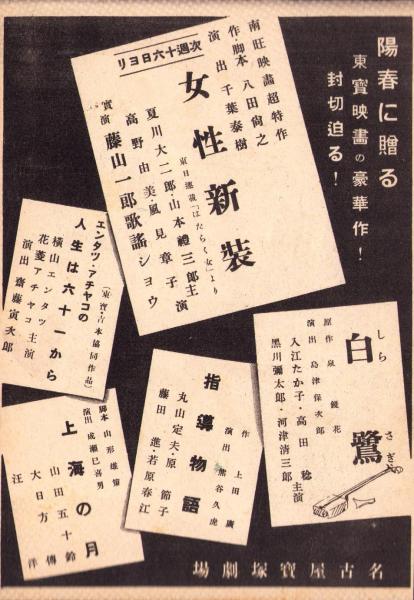 陽春に贈る
東寶映畫の豪華作！
封切迫る！
次週十六日ヨリ
南旺映畫超特作
作・脚本 八田尚之
演出 千葉泰樹
女性新装
東日連載「はたらく女」より
夏川大二郎・山本禮三郎主演
高野由美・風見章子
實演 藤山一郎歌謠ショウ
（東寶・吉本協同作品）
エンタツ・アチャコの
人生は六十一から
横山エンタツ
花菱アチャコ主演
演出 齋藤寅次郎
原作 泉鏡花
演出 島津保次郎
白鷺
しらさぎ
入江たか子・高田稔
黒川彌太郎・河津清三郎主演
作 上田廣
演出 熊谷久虎
指導物語
丸山定夫・原節子
藤田進・若原春江
脚本 山形雄策
演出 成瀬巳喜男
上海の月
山田五十鈴
大日方傳
汪洋
名古屋寶塚劇場